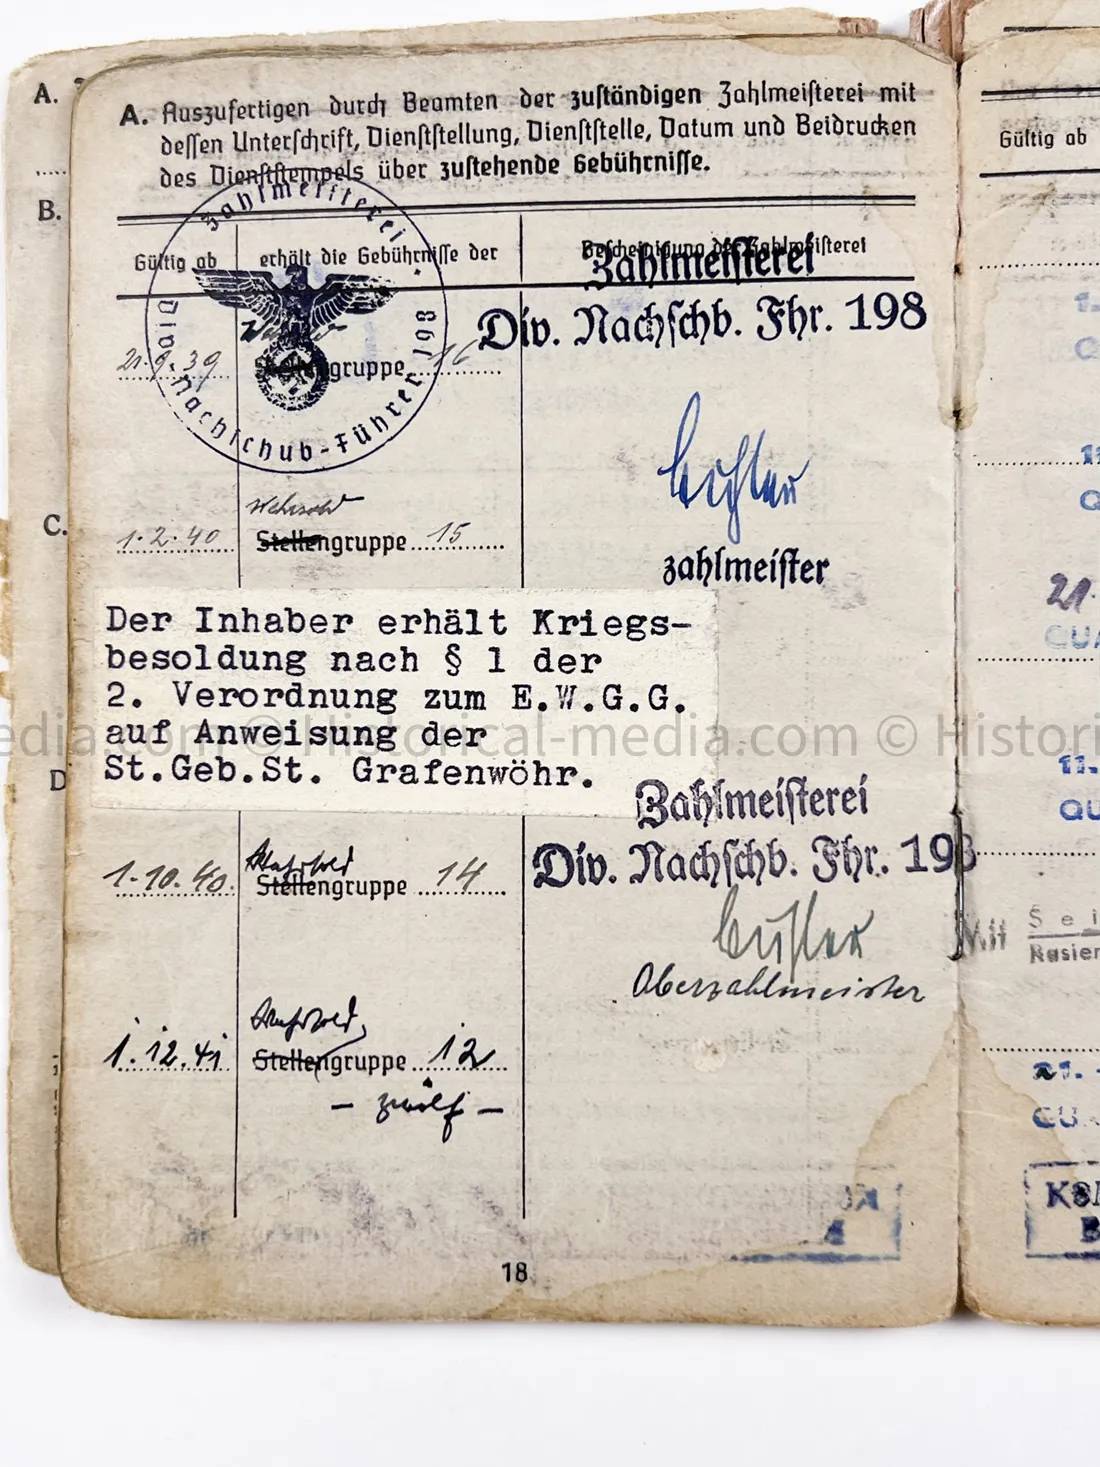 A.
A. Auszufertigen durch Beamten der zuständigen Zahlmeisterei mit
dessen Unterschrift, Dienststellung, Dienststelle, Datum und Beidrucken
des Dienststempels über zustehende Gebührnisse.
B.
Zahlmeisterei
Div. Nachschub-Führer 198
Gültig ab
erhält die Gebührnisse der
Bescheinigung der Zahlmeisterei
Zahlmeisterei
Div. Nachschb. Fhr. 198
21.9.39
Stellengruppe 16
zahlmeister
C.
Wehrsold
1.2.40
Stellengruppe 15
Der Inhaber erhält Kriegs-
besoldung nach § 1 der
2. Verordnung zum E.W.G.G.
auf Anweisung der
St.Geb.St. Grafenwöhr.
D
Zahlmeisterei
Div. Nachschb. Fhr. 198
Wehrsold
1.10.40.
Stellengruppe 14
Oberzahlmeister
Wehrsold
1.12.41
Stellengruppe 12
- zwölf -
18
Gültig ab
11.
QU
Mit
Sei
Rasier
21.
QU
© Historical-media.com ©